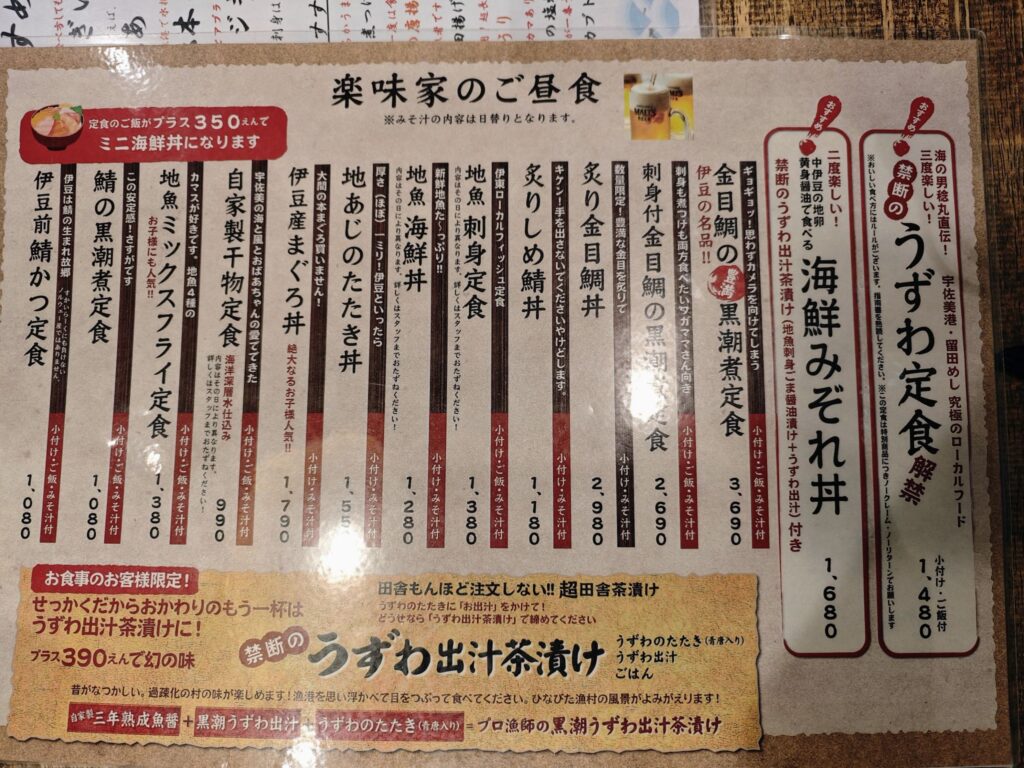 楽味家のご昼食
※みそ汁の内容は日替りとなります。
定食のご飯がプラス350えんで
ミニ海鮮丼になります
おすすめ
海の男稔丸直伝!
三度楽しい!
宇佐美港・留田めし 究極のローカルフード
禁断の うずわ定食 解禁
小付け・ご飯付
1,480
※おいしい食べ方にはルールがございます。指南書を熟読してください。※この定食は特別商品につきノークレーム・ノーリターンでお願いします
おすすめ
二度楽しい!
中伊豆の地卵
黄身醤油で食べる 海鮮みぞれ丼
1,680
禁断のうずわ出汁茶漬け(地魚刺身ごま醤油漬け+うずわ出汁)付き
ギョギョッ!思わずカメラを向けてしまう 小付け・ご飯・みそ汁付
金目鯛の黒潮煮定食
3,690
伊豆の名品!!
刺身も煮つけも両方食べたいワガママさん向き 小付け・ご飯・みそ汁付
刺身付金目鯛の黒潮煮定食
2,690
数量限定!豊満な金目を炙りで 小付け・みそ汁付
炙り金目鯛丼
2,980
キケン!手を出さないでくださいやけどします。 小付け・みそ汁付
炙りしめ鯖丼
1,180
伊東ローカルフィッシュ定食 小付け・ご飯・みそ汁付
地魚 刺身定食
1,380
内容はその日により異なります。詳しくはスタッフまでおたずねください!
新鮮地魚た〜っぷり!! 小付け・みそ汁付
地魚 海鮮丼
1,280
内容はその日により異なります。詳しくはスタッフまでおたずねください!
厚さ(ほぼ)一ミリ!伊豆といったら 小付け・みそ汁付
地あじのたたき丼
1,55
大間の本まぐろ買いません! 小付け・みそ汁付
伊豆産まぐろ丼
絶大なるお子様人気!!
1,790
宇佐美の海と風とおばあちゃんの愛でできた 小付け・ご飯・みそ汁付
自家製干物定食
海洋深層水仕込み
内容はその日により異なります。
詳しくはスタッフまでおたずねください!
990
カマスが好きです。地魚4種の 小付け・ご飯・みそ汁付
地魚ミックスフライ定食
お子様にも人気!!
1,380
この安定感!さすがです 小付け・ご飯・みそ汁付
鯖の黒潮煮定食
1,080
伊豆は鯖の生まれ故郷 小付け・ご飯・みそ汁付
ノルウェー産ではありません。
伊豆前鯖かつ定食
1,080
お食事のお客様限定!
せっかくだからおかわりのもう一杯は
うずわ出汁茶漬けに!
プラス390えんで幻の味
田舎もんほど注文しない!! 超田舎茶漬け
うずわのたたきに「お出汁」をかけて!
どうせなら「うずわ出汁茶漬け」で締めてください
禁断の うずわ出汁茶漬け
うずわのたたき(青唐入り)
うずわ出汁
ごはん
昔がなつかしい。過疎化の村の味が楽しめます!漁港を思い浮かべて目をつぶって食べてください。ひなびた漁村の風景がよみがえります!
自家製 三年熟成魚醤+黒潮うずわ出汁+うずわのたたき(青唐入り)=プロ漁師の黒潮うずわ出汁茶漬け